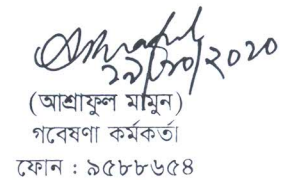 ২৯/১০/২০২০
(আশ্রাফুল মামুন)
গবেষণা কর্মকর্তা
ফোন : ৯৫৮৮৬৫৪